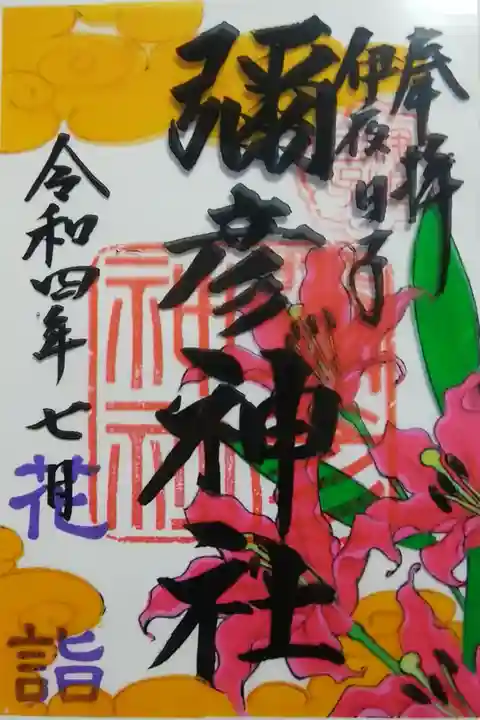 奉拝
伊夜日子
彌彦神社
令和四年七月
花詣